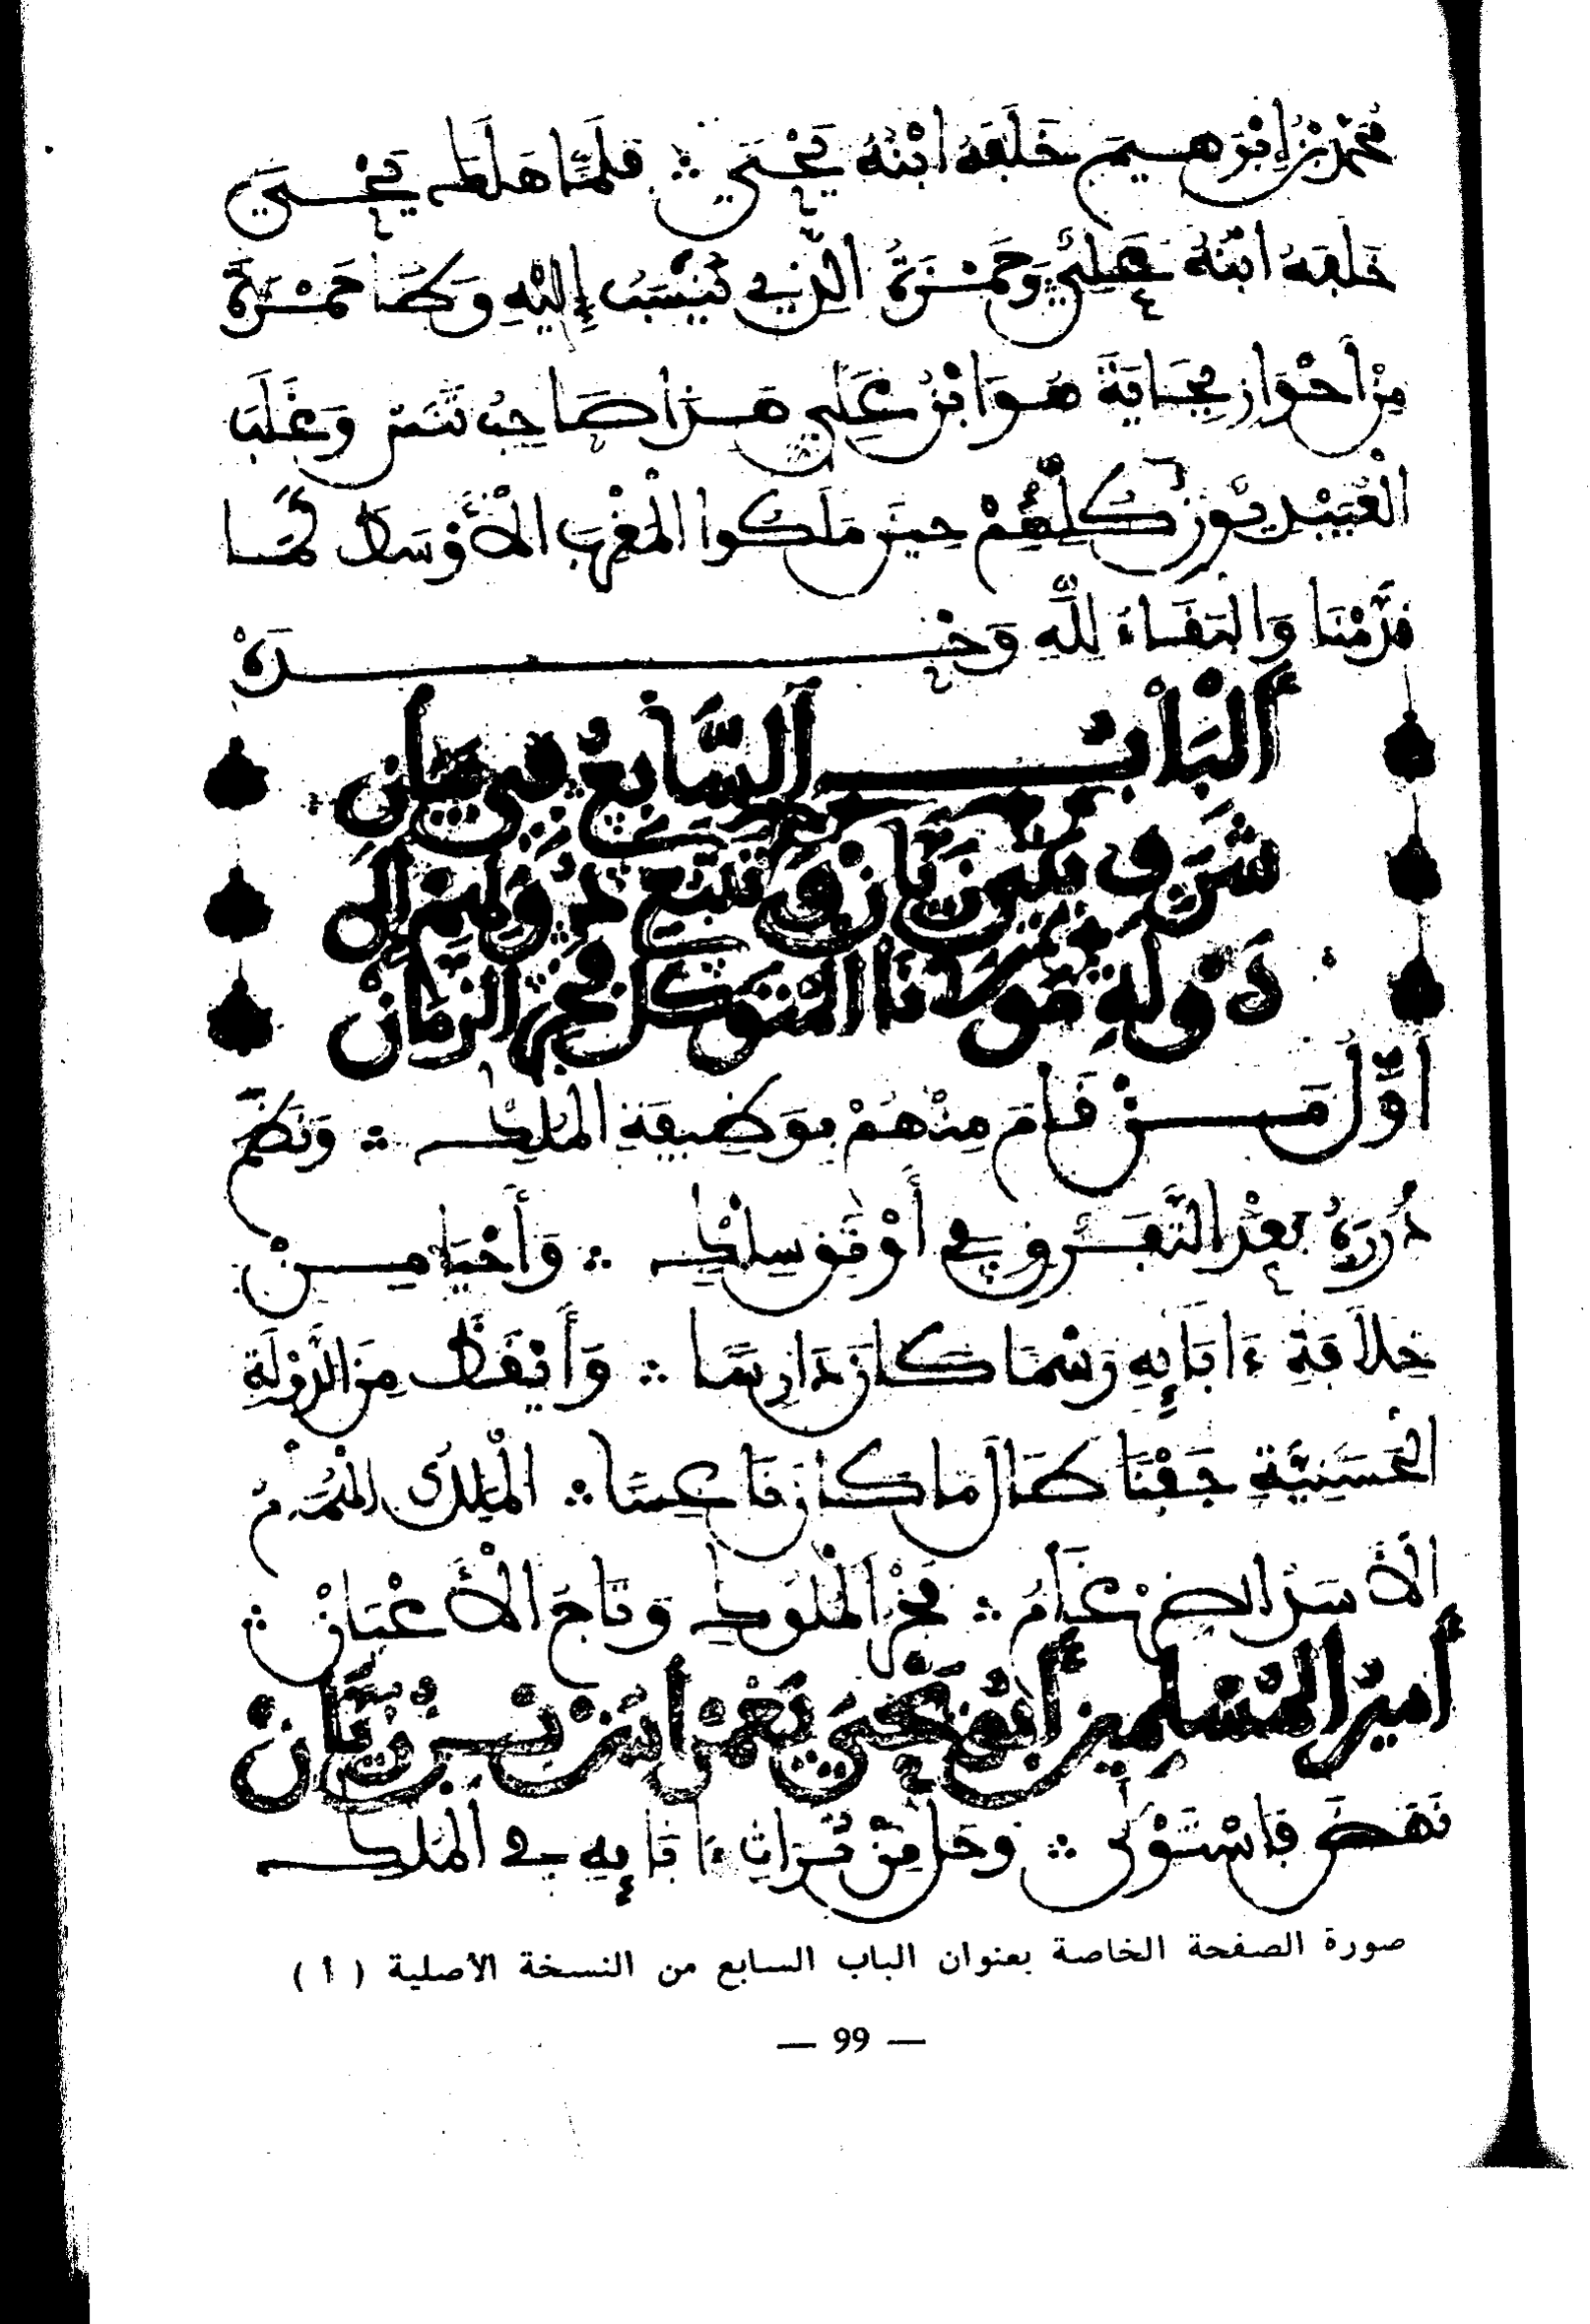 مُحَمَّد بْنُ إِبْرَهِيمَ خَلَفَهُ ابْنُهُ يَحْيَى ∴ فَلَمَّا هَلَكَ يَحْيَى
خَلَفَهُ ابْنُهُ عَلِيٌّ وَحَمْزَةُ الَّذِي يُنْسَبُ إِلَيْهِ وَطَا حَمْزَةَ
مِنْ أَحْوَازِ بِجَايَةَ هُوَ ابْنُ عَلِي هَذَا صَاحِبُ تَنَسْ وَغَلَبَ
الْعُبَيْدِيُّونَ كُلَّهُمْ حِينَ مَلَكُوا الْمَغْرِبَ الْأَوْسَطَ كَمَا
قَدَّمْنَا وَالْبَقَاءُ لِلَّهِ وَحْدَهُ
أَلْبَابُ السَّابِعُ فِي بَيَانِ
شَرَفِ بَنِي زَيَّانَ وَتَتَبُّعِ دَوْلَتِهِمْ إِلَى
دَوْلَةِ مَوْلَانَا الْمُتَوَكِّلِ فَخْرِ الزَّمَانْ
أَوَّلُ مَنْ قَامَ مِنْهُمْ بِوَظِيفَةِ الْمُلْكِ ∴ وَنَظَمَ
دُرَرَهُ بَعْدَ التَّفَرُّقِ فِي أَوْثَقِ سِلْكِ ∴ وَأَحْيَا مِنْ
خِلَافَةِ ءَابَائِهِ رَسْمًا كَانَ دَارِسًا ∴ وَأَيْقَظَ مِنَ الدَّوْلَةِ
الْحَسَنِيَّةِ جَفْنًا طَالَ مَا كَانَ نَاعِسًا ∴ الْمَلِكُ الْهُمَامُ
الْأَسَدُ الضِّرْغَامُ ∴ فَخْرُ الْمُلُوكِ وَتَاجُ الْأَعْيَانْ ∴
أَمِيرُ الْمُسْلِمِينَ أَبُو يَحْيَى يَغَمْرَاسَنْ بْنُ زَيَّانْ
نَهَضَ فَاسْتَوْلَى ∴ وَحَلَّ مِنْ تُرَاثِ ءَابَائِهِ فِي الْمُلْكِ
صورة الصفحة الخاصة بعنوان الباب السابع من النسخة الأصلية ( أ )
— 99 —